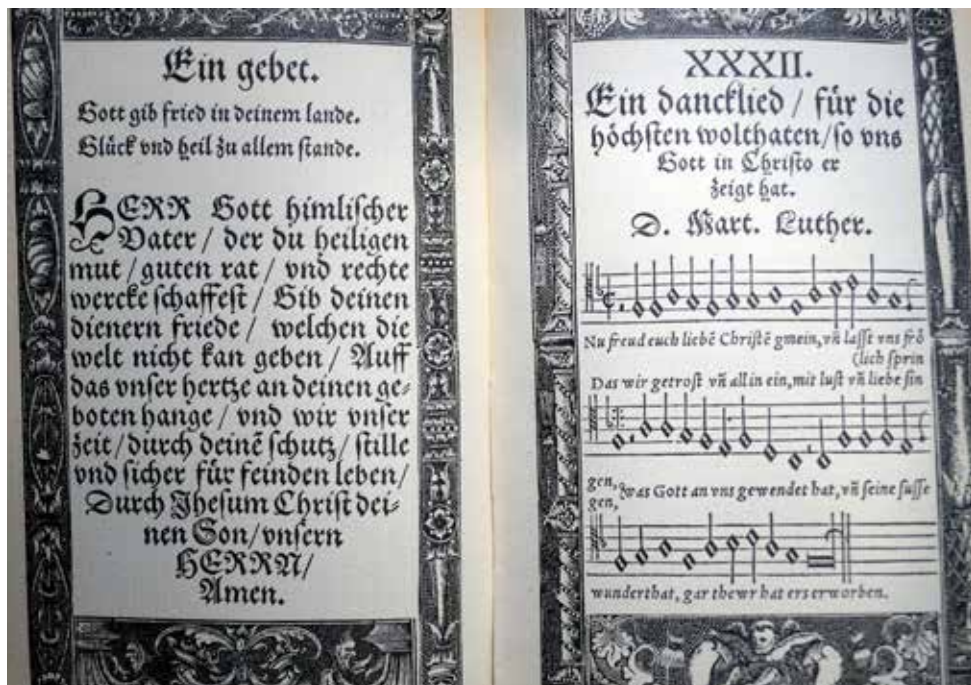 Ein gebet.
Gott gib fried in deinem lande.
Glück vnd heil zu allem stande.
HERR Gott himlischer
Vater / der du heiligen
mut / guten rat / vnd rechte
wercke schaffest / Gib deinen
dienern friede / welchen die
welt nicht kan geben / Auff
das vnser hertze an deinen ge-
boten hange / vnd wir vnser
zeit / durch deinē schutz / stille
vnd sicher für feinden leben /
Durch Jhesum Christ dei-
nen Son / vnsern
HERRN /
Amen.
XXXII.
Ein dancklied / für die
höchsten wolthaten / so vns
Gott in Christo er
zeigt hat.
D. Mart. Luther.
Nu freud euch liebē Christē gmein, vn̄ lasst vns frö
(lich sprin
Das wir getrost vn̄ all in ein, mit lust vn̄ liebe sin
gen, was Gott an vns gewendet hat, vn̄ seine süsse
gen,
wunderthat, gar thewr hat ers erworben.